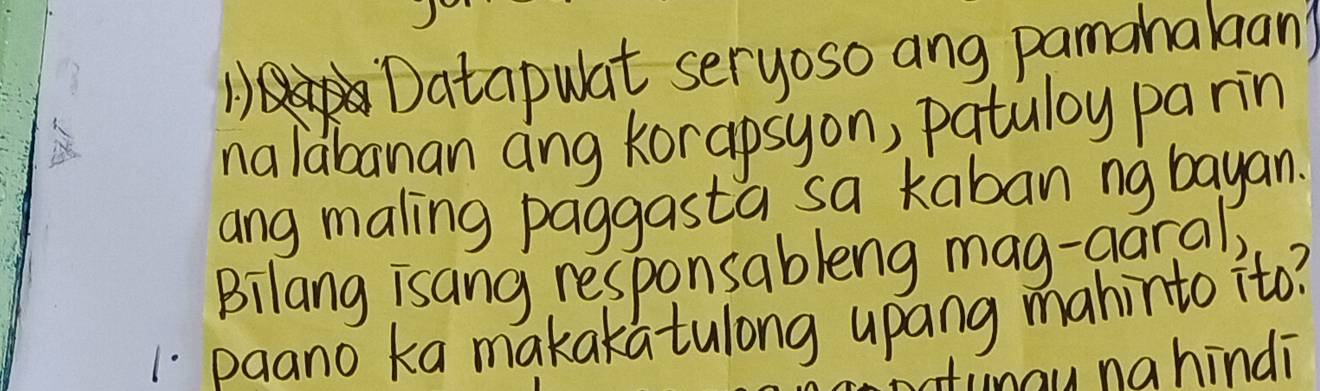 1.) Datapwat seryoso ang pamahalaan
na labanan ang korapsyon, patuloy pa rin
ang maling paggasta sa kaban ng bayan.
Bilang isang responsableng mag-aaral,
1. paano ka makakatulong upang mahinto ito?
na hindi